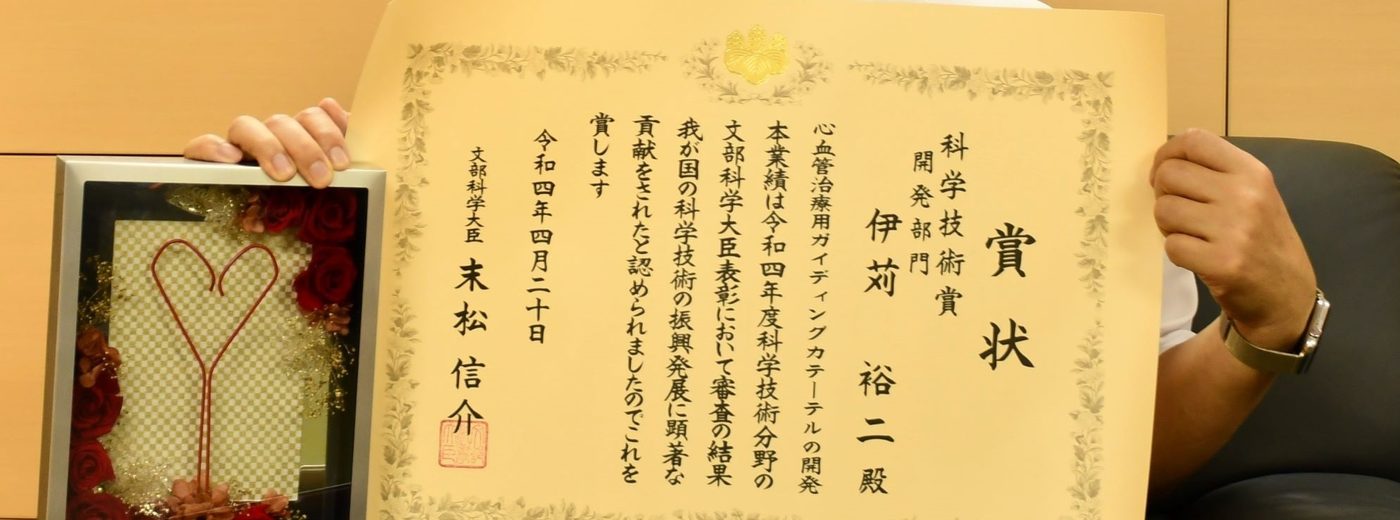 賞状
科学技術賞
開発部門
伊苅 裕二 殿
心血管治療用ガイディングカテーテルの開発
本業績は令和四年度科学技術分野の
文部科学大臣表彰において審査の結果
我が国の科学技術の振興発展に顕著な
貢献をされたと認められましたのでこれを
賞します
令和四年四月二十日
文部科学大臣 末松信介